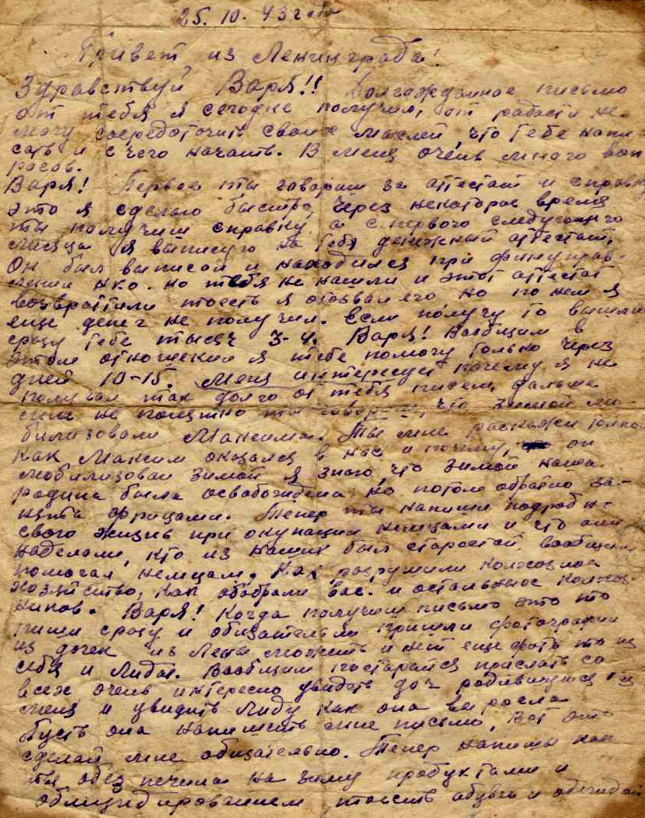 25. 10. 43 года
Привет из Ленинграда!
Здравствуй Варя!! Долгожданное письмо
от тебя я сегодня получил, от радости не
могу сосредоточить своих мыслей, что тебе напи
сать и с чего начать. В меня очень много воп
расов.
Варя! Первое ты говориш за аттестат и справку
это я сделаю быстро, через некоторое время
ты получиш справку а с первого следующего
месяца я вышлю на тебя денежный аттестат,
Он был выписан и находился при финуправ-
лении НКО. но тебя не нашли и этот аттестат
возвратили тоесть я отозвал его но по нем я
еще денег не получил. если получу то вышлю
сразу тебе тысяч 3-4. Варя! Вообщим в
этом отношении я тебе помогу только через
дней 10-15. Меня интересует почему я не
получал так долго от тебя писем, дальше
мне не понятно ты говориш, что зимой мо-
билизовали Максима. Ты мне раскажи толко
как Максим оказался в нас и почему, он
мобилизован зимой я знаю, что зимой наша
родина была освабождена но потом обратно за-
нята фрицами. Тепер ты напиши подробно
свою жизнь при окупации немцами и что они
наделали, кто из наших был старостой вообщим
помогал немцам. Как разрушили колхозное
хозяйство, как обобрали вас. и остальных колхоз
ников. Варя! Когда получиш письмо это то
пиши сразу и обизательно пришли фотографии
из дочек из Лены сможиш и нет еще фото то из
себя и Лиды. Вообщим постарайся прислать со
всех очень интересно увидеть доч родившуюся без
меня и увидить Лиду как она выросла
пусть она напишет мне письмо, Вот это
сделай мне обизательно. Тепер напиши как
ты обезпечина на зиму продуктами и
обмундированием тоесть обувю и одеждой